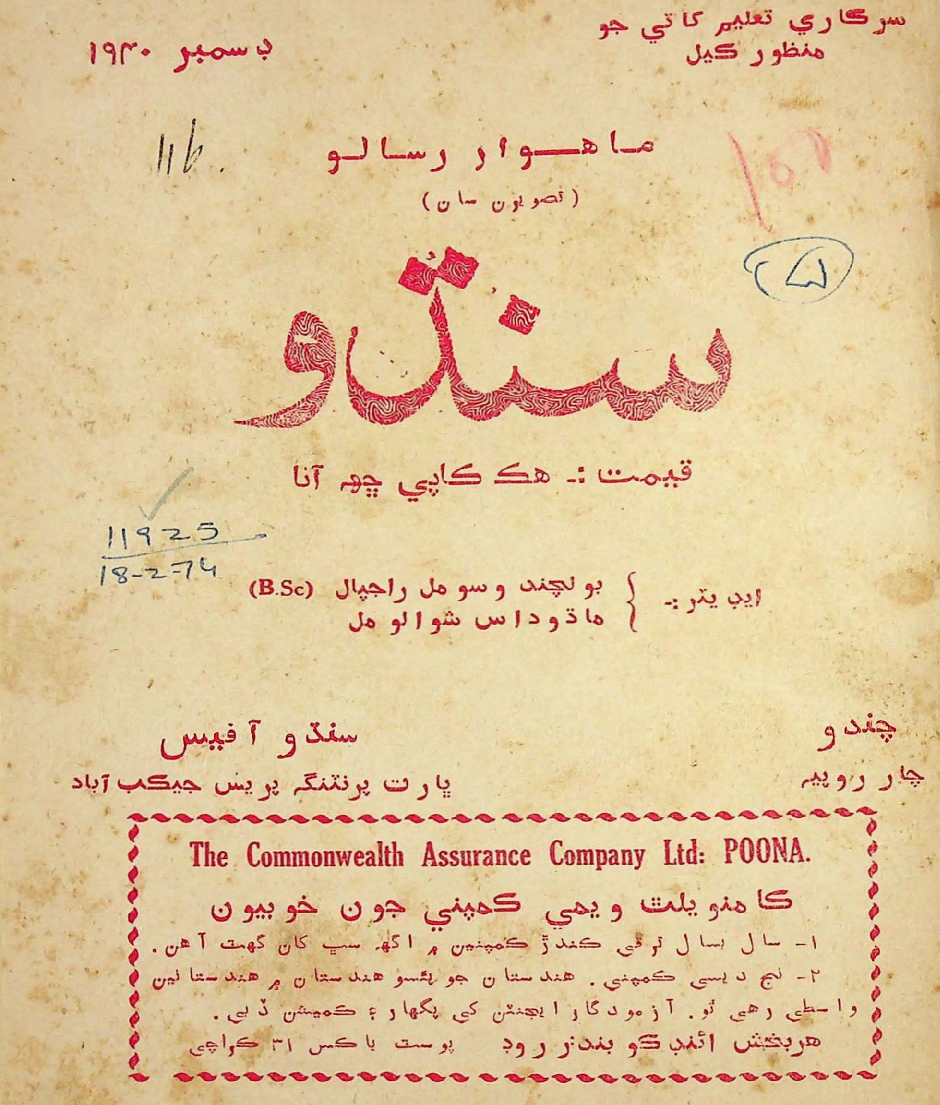 سرڪاري تعليم کاتي جو
منظور ڪيل
ڊسمبر ۱۹۴۰
ماهوار رسالو
116.
100
(تصويرن سان)
سنڌو
قيمت :- هڪ ڪاپي ڇهه آنا
11925
18-2-74
ايڊيٽر :-
ٻولچند وسو مل راجپال (B.Sc)
ماڌوداس شوالو مل
چندو
چار روپيه
سنڌو آفيس
ڀارت پرنٽنگ پريس جيڪب آباد
The Commonwealth Assurance Company Ltd: POONA.
ڪامنويلٿ ويمي ڪمپني جون خوبيون
۱- سال بسال ترقي ڪندڙ ڪمپنين ۾ اگهه سڀ کان گهٽ آهن.
۲- نج ديسي ڪمپني. هندستان جو پئسو هندستان ۾ هندستانين
واسطي رهي ٿو. آزمودگار ايجنٽن کي پگهار ۽ ڪميشن ڏبي.
هربخش ائنڊ ڪو بندر روڊ پوسٽ باڪس ۳۱ ڪراچي